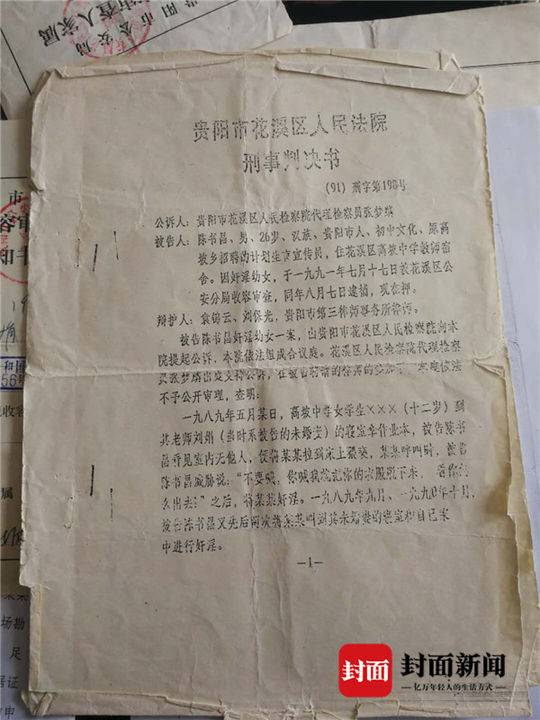 贵阳市花溪区人民法院
刑事判决书
(91) 刑字第198号
公诉人:贵阳市花溪区人民检察院代理检察员张梦瑱
被告人:陈书昌、男、26岁、汉族、贵阳市人、初中文化、原高
坡乡招聘的计划生育宣传员,住花溪区高坡中学教师宿
舍。因奸淫幼女,于一九九一年七月十七日被花溪区公
安分局收容审查,同年八月七日逮捕,现在押。
辩护人:袁锦云、刘保光,贵阳市第三律师事务所律师。
被告陈书昌奸淫幼女一案,由贵阳市花溪区人民检察院向本
院提起公诉,本院依法组成合议庭。花溪区人民检察院代理检察
员张梦瑱出庭支持公诉,在被告聘请的律师的参加下,本庭依法
不予公开审理,查明:
一九八九年五月某日,高坡中学女学生×××(十二岁)到
其老师刘娟(当时系被告的未婚妻)的寝室拿作业本,被告陈书
昌看见室内无他人,便将某某拉到床上猥亵,某某呼叫时,被告
陈书昌威胁说:“不要喊,你喊我就把你的衣服脱下来,看你怎
么出去!”之后,将某某奸淫。一九八九年九月,一九九〇年十月,
被告陈书昌又先后两次将某某叫到其未婚妻的寝室和自己家
中进行奸淫。
—1—
封面
封面新闻
亿万年轻人的生活方式